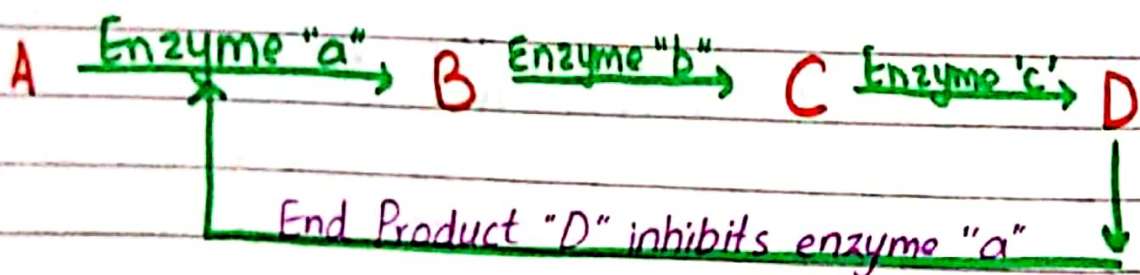 A Enzyme "a" B Enzyme "b" C Enzyme 'c' D
End Product "D" inhibits enzyme "a"